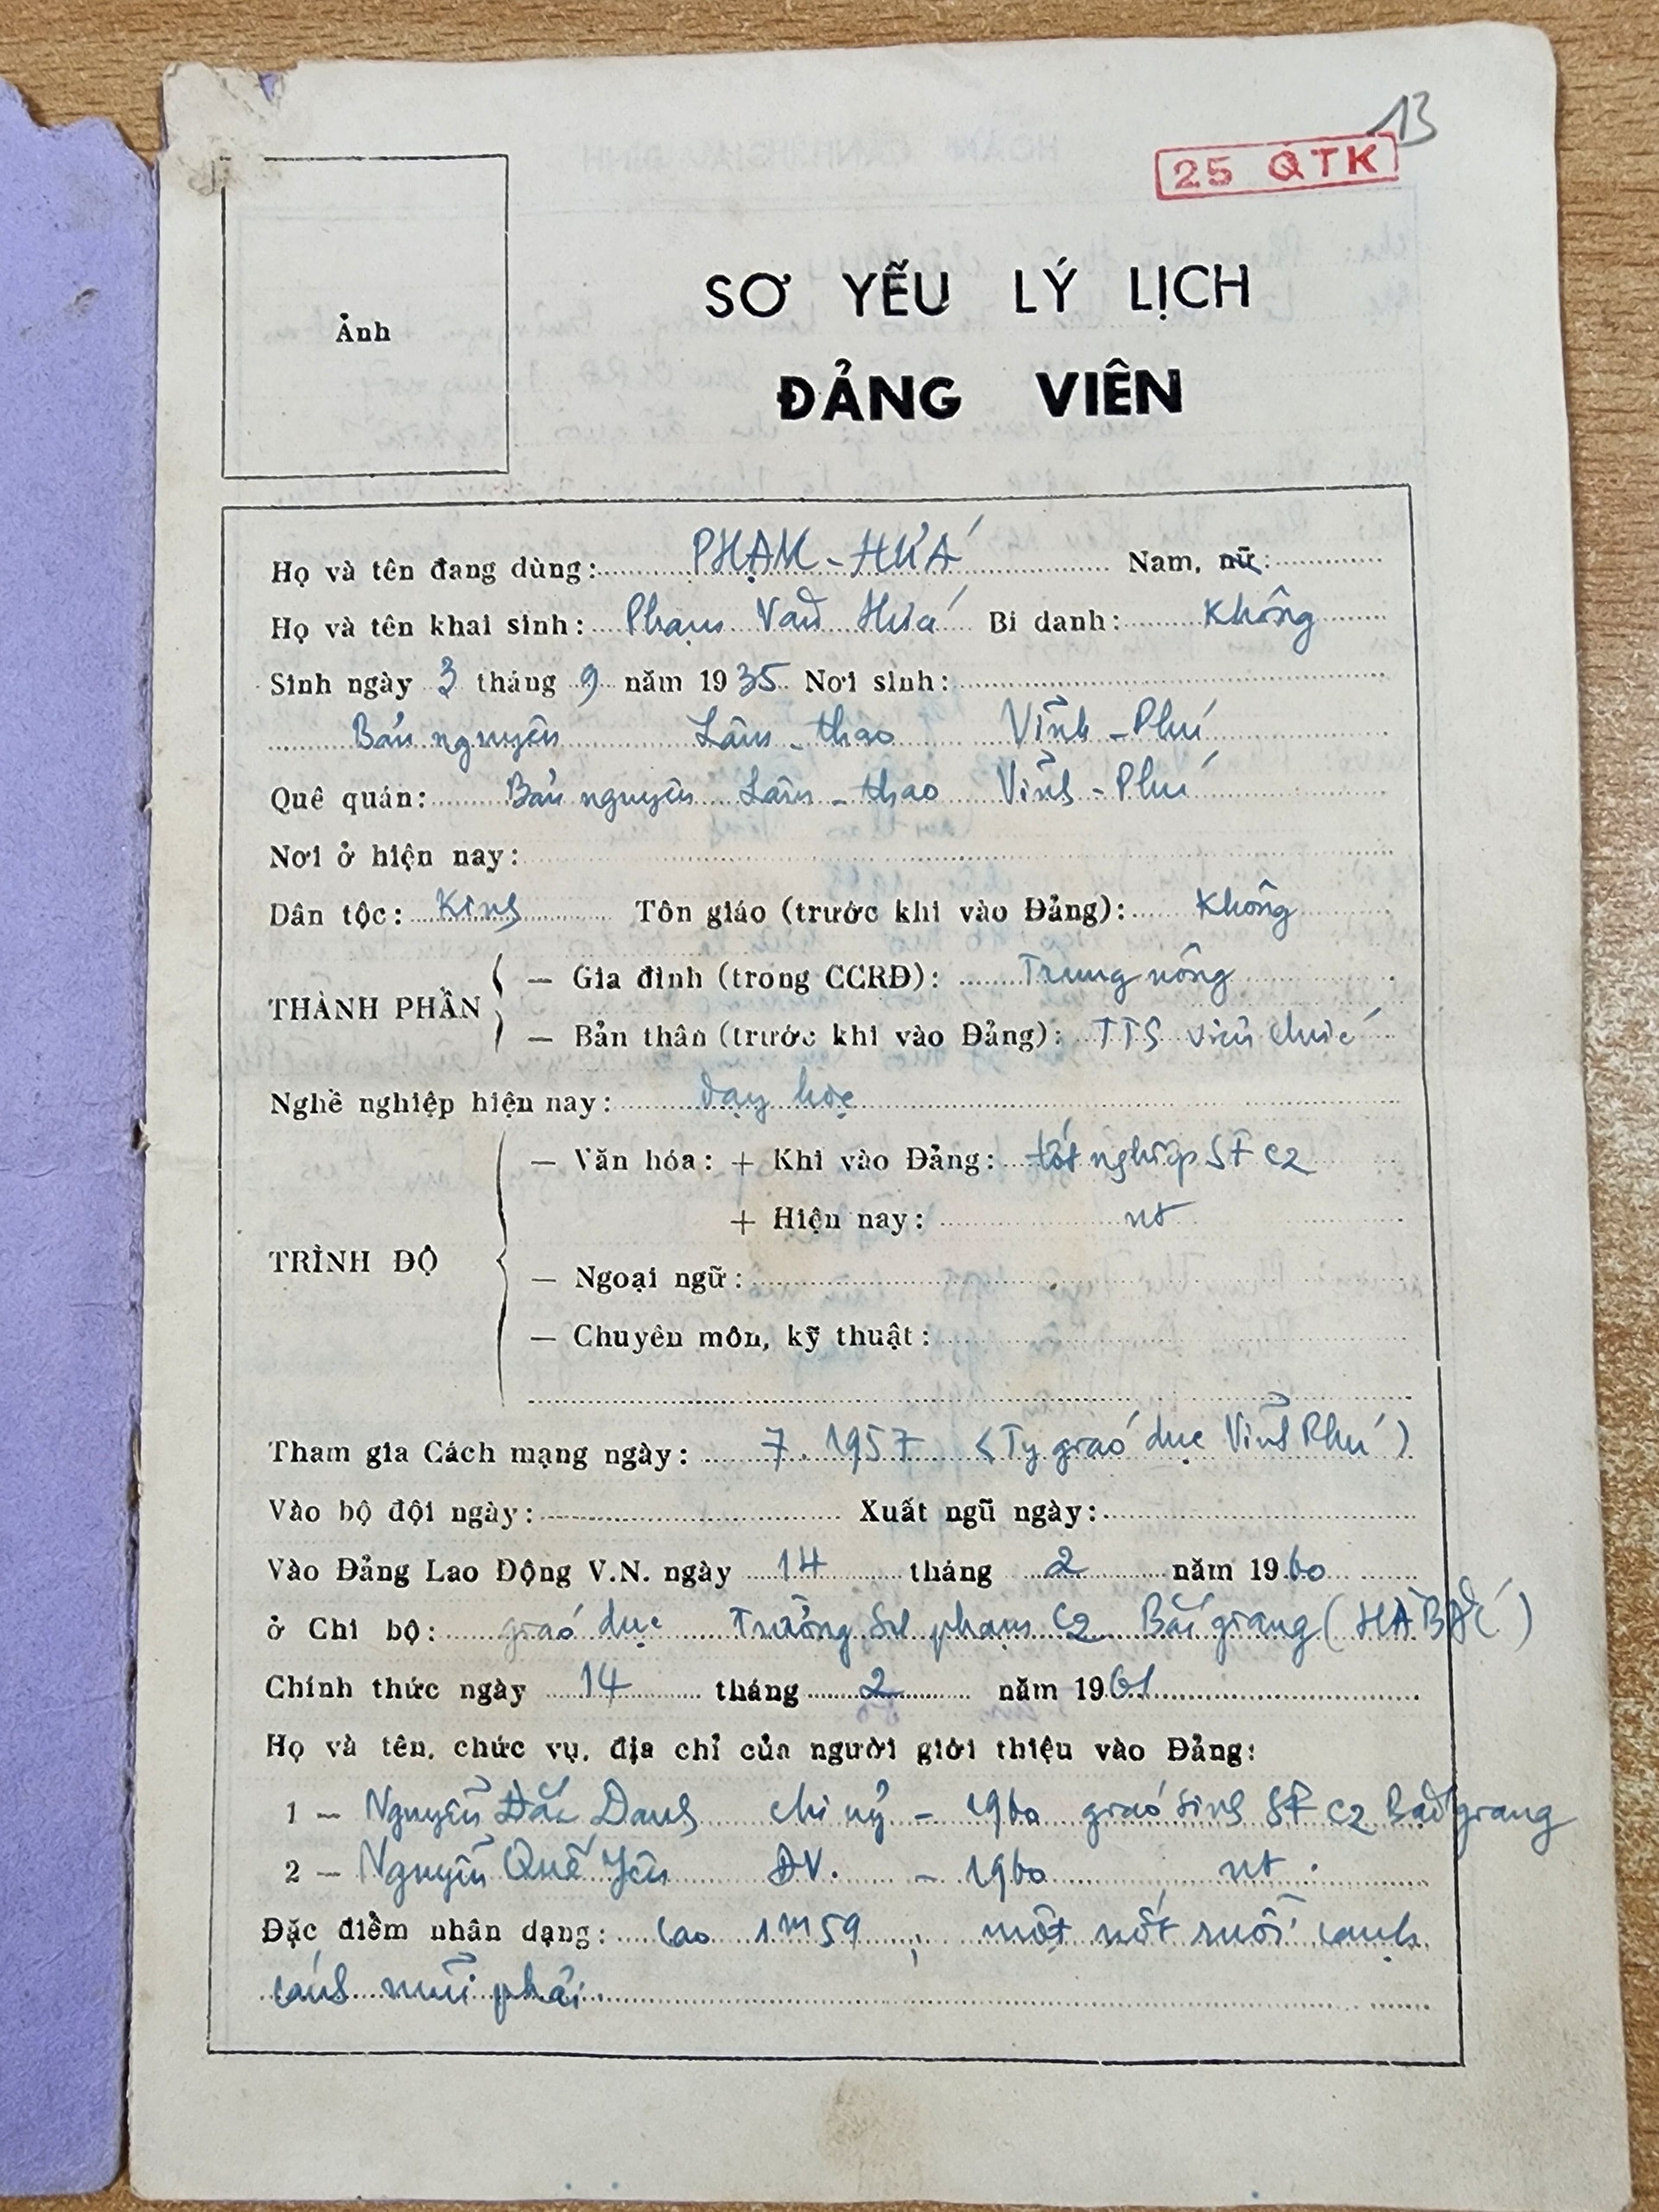 13
25 QTK
Ảnh
SƠ YẾU LÝ LỊCH
ĐẢNG VIÊN
Họ và tên đang dùng: PHẠM - HỨA Nam, nữ:
Họ và tên khai sinh: Phạm Văn Hứa Bí danh: Không
Sinh ngày 3 tháng 9 năm 1935 Nơi sinh:
Bản nguyên Lâm - thao Vĩnh - Phú
Quê quán: Bản nguyên Lâm - thao Vĩnh - Phú
Nơi ở hiện nay:
Dân tộc: Kinh Tôn giáo (trước khi vào Đảng): Không
THÀNH PHẦN
— Gia đình (trong CCRĐ): Trung nông
— Bản thân (trước khi vào Đảng): TTS viên chức
Nghề nghiệp hiện nay: dạy học
TRÌNH ĐỘ
— Văn hóa: + Khi vào Đảng: tốt nghiệp SF c2
+ Hiện nay: nt
— Ngoại ngữ:
— Chuyên môn, kỹ thuật:
Tham gia Cách mạng ngày: 7.1957 (Ty giáo dục Vĩnh Phú)
Vào bộ đội ngày: Xuất ngũ ngày:
Vào Đảng Lao Động V.N. ngày 14 tháng 2 năm 1960
ở Chi bộ: giáo dục Trường Sư phạm C2 Bắc giang (HÀ BẮC)
Chính thức ngày 14 tháng 2 năm 1961
Họ và tên, chức vụ, địa chỉ của người giới thiệu vào Đảng:
1 — Nguyễn Đắc Danh chi uỷ - 1960 giáo sinh SF c2 Bắc giang
2 — Nguyễn Quế Yên ĐV. - 1960 nt.
Đặc điểm nhân dạng: Cao 1m59, một nốt ruồi cạnh
cánh mũi phải.